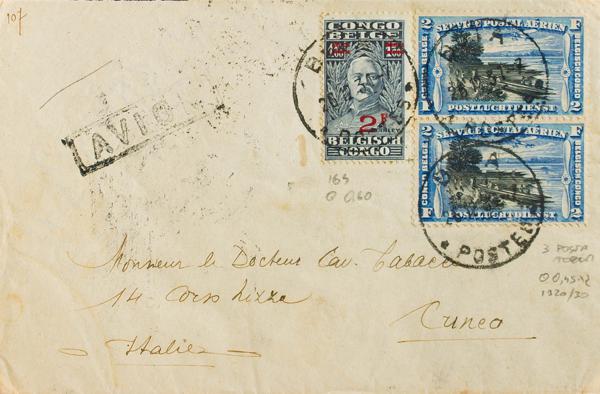 107
AVION
CONGO
BELGE
2F
STANLEY
BELGISCH
CONGO
2 SERVICE POSTAL AÉRIEN F
CONGO BELGE
BELGISCH CONGO
F POSTLUCHTDIENST 2
2 SERVICE POSTAL AÉRIEN F
CONGO BELGE
BELGISCH CONGO
F POSTLUCHTDIENST 2
POSTES
169
0,60
3 POSTA
1920/30
Monsieur le Docteur Cav.
14 Corso Nizza
Cuneo
Italie